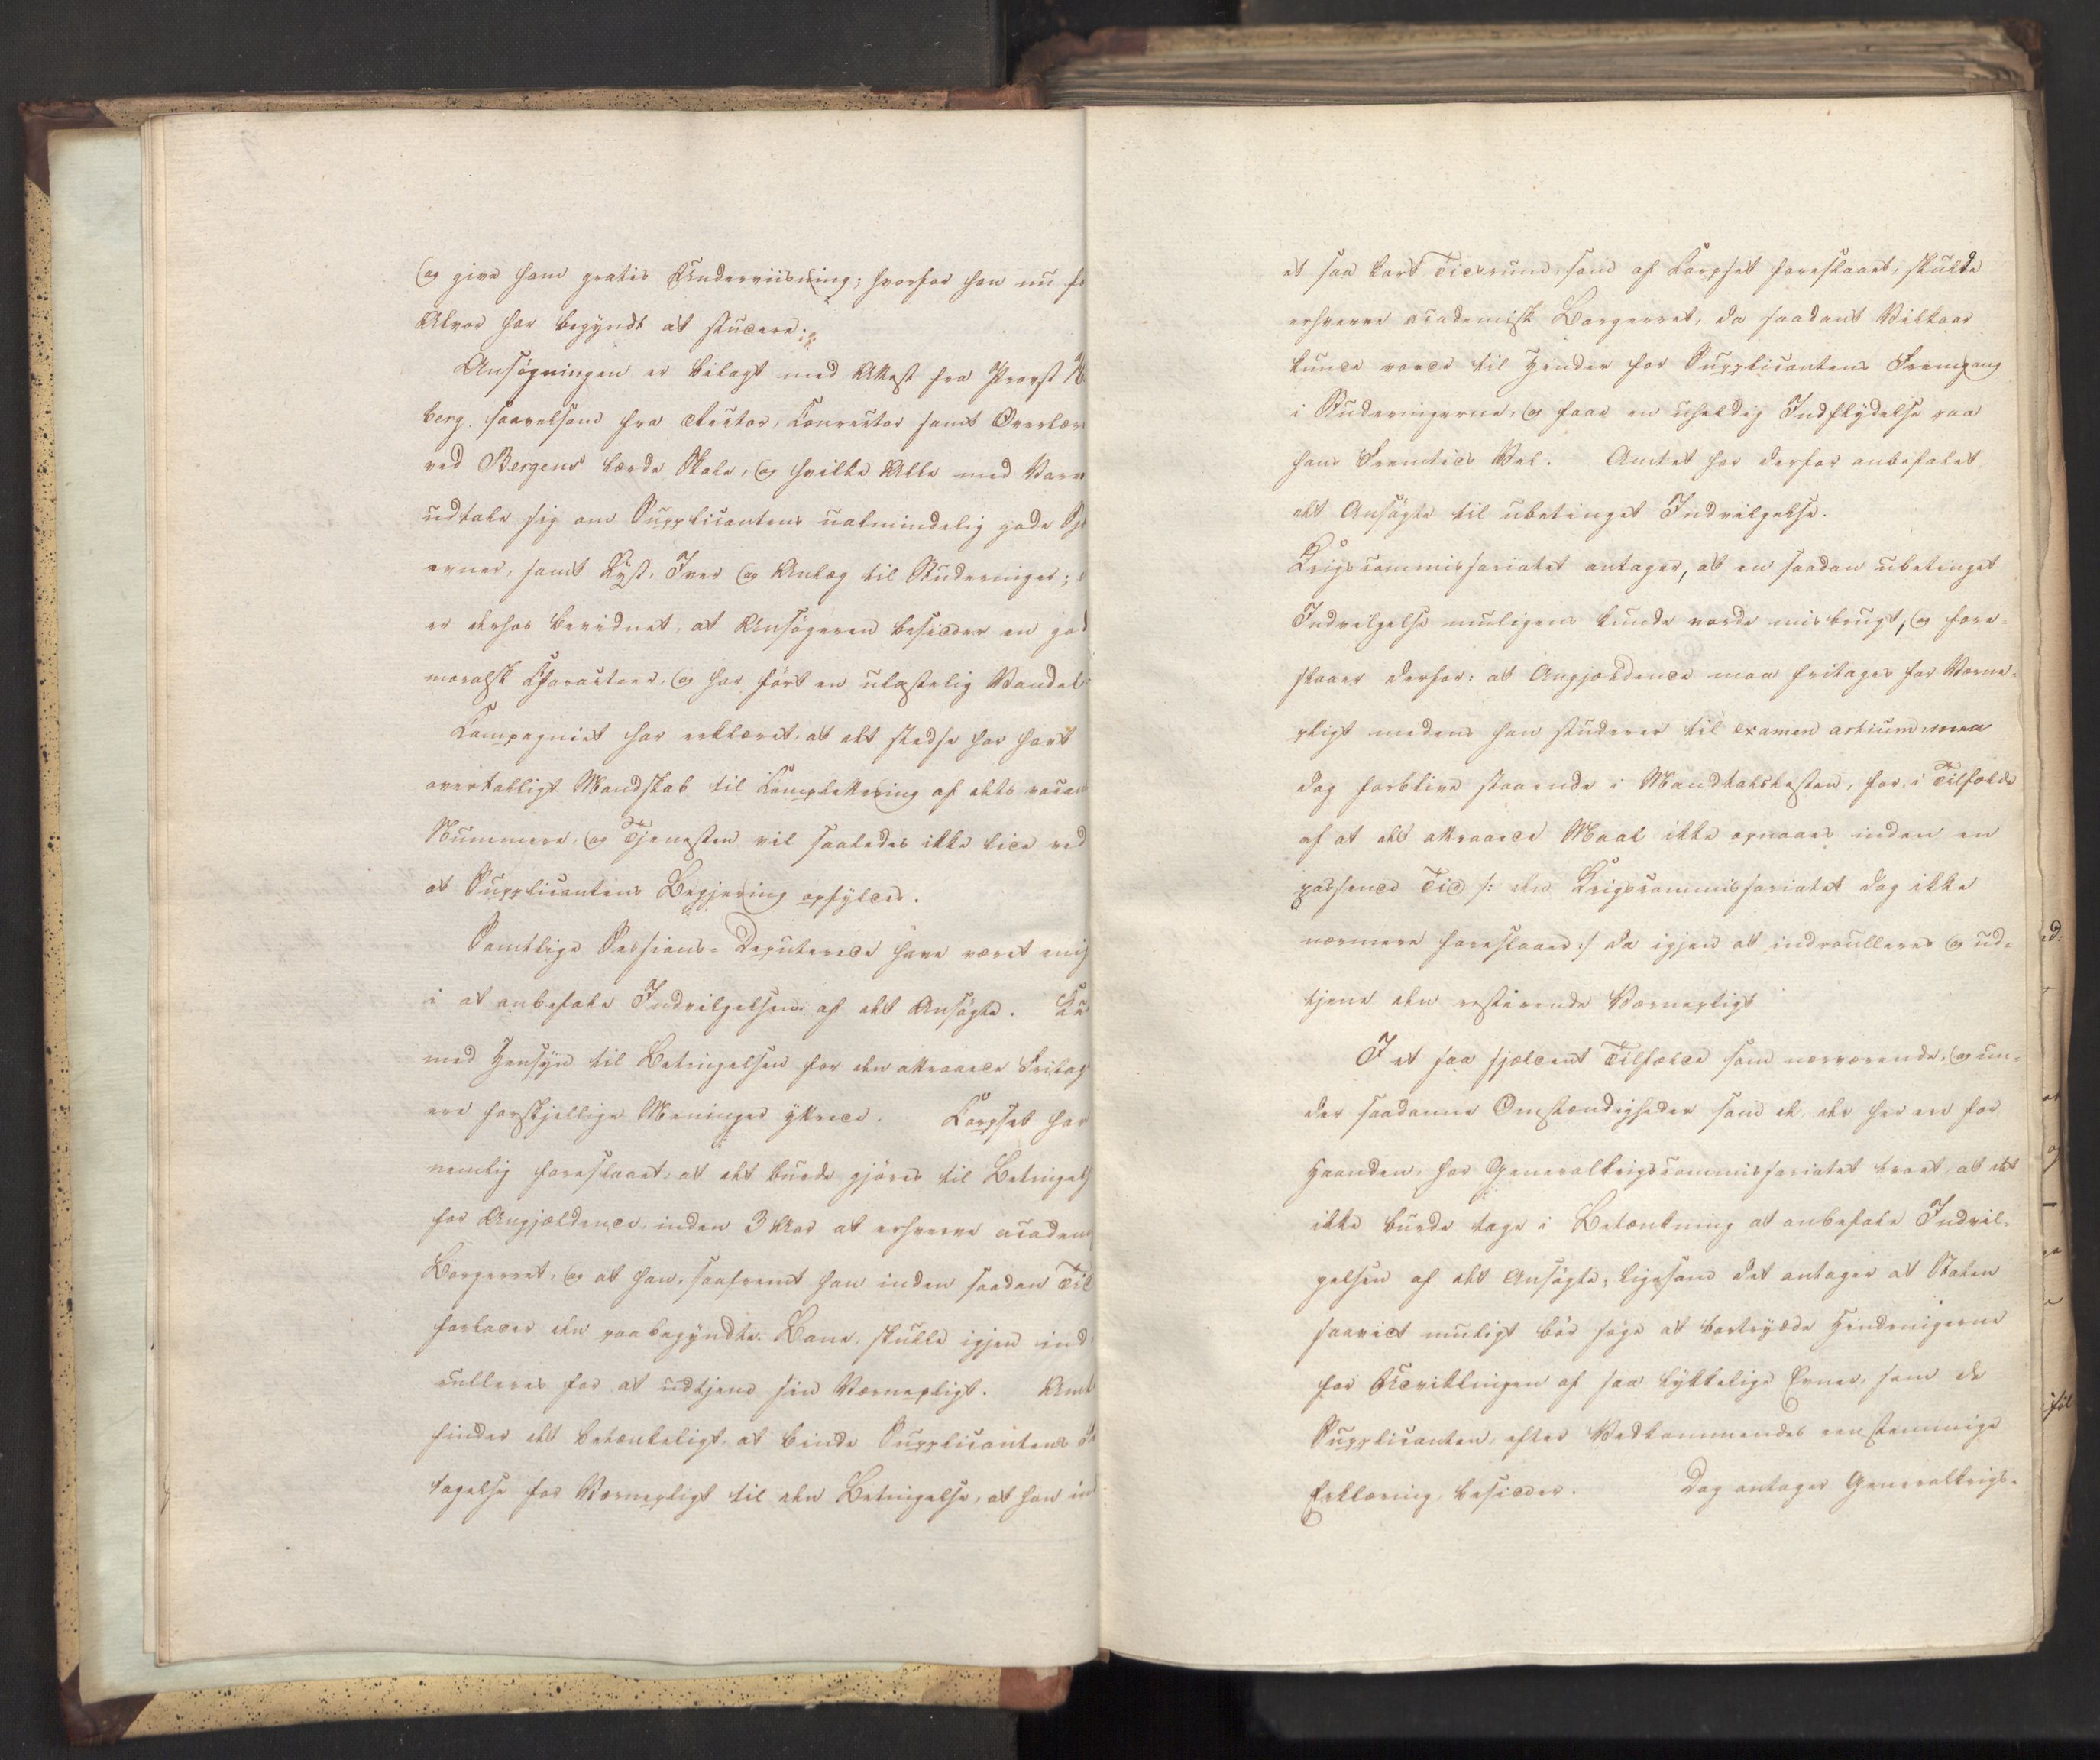 og give ham gratis Underviisning; hvorfor han nu fo
Alvor har begyndt at studere.
Ansøgningen er bilagt med Attest fra Provst
berg, saavelsom fra Rector, Conrector samt Overlær
ved Bergens lærde Skole, og hvilke Alle med Varm
udtale sig om Supplicantens ualmindelig gode
evner, samt Lyst, Iver og Anlæg til Studeringer;
er derhos bevidnet, at Ansøgeren besidder en god
moralsk Characteer, og har ført en ulastelig Vandel
Compagniet har erklæret, at det stedse har havt
overtalligt Mandskab til Complettering af dets vacan
Nummere, og Tjenesten vil saaledes ikke lide ved
at Supplicantens Begjering opfyldes.
Samtlige Sessions-Deputerede have været enig
i at anbefale Indvilgelsen af det Ansøgte. Ku
med Hensyn til Betingelsen for den attraaede Fritag
ere forskjellige Meninger yttrede. Corpset har
nemlig foreslaaet, at det burde gjøres til Betingels
for Angjældende, inden 3 Aar at erhverve academ
Borgerret, og at han, saafremt han inden saadan Tid
forlader den paabegyndte Bane, skulle igjen ind
rulleres for at udtjene sin Værnepligt. Amt
finder det betænkeligt, at binde Supplicantens
tagelse for Værnepligt til den Betingelse, at han in
et saa kort Tidsrum, som af Corpset foreslaaet, skulde
erhverve academisk Borgerret, da saadant Vilkaar
kunde være til Hinder for Supplicantens Fremgang
i Studeringerne, og faae en uheldig Indflydelse paa
hans Fremtids Vel. Amtet har derfor anbefalet
det Ansøgte til ubetinget Indvilgelse.
Krigscommissariatet antager, at en saadan ubetinget
Indvilgelse muligens kunde vorde misbrugt, og fore-
slaaer derfor: at Angjældende maa fritages for Værne-
pligt medens han studerer til examen artium, maa
dog forblive staaende i Mandtalslisten, for, i Tilfælde
af at det attraaede Maal ikke opnaaes inden en
passende Tid /: den Krigscommissariatet dog ikke
nærmere foreslaaer :/ da igjen at indroulleres og ud-
tjene den resterende Værnepligt
I et saa sjældent Tilfælde som nærværende, og un-
der saadanne Omstændigheder som de, der her ere for
Haanden, har Generalkrigscommissariatet troet, at det
ikke burde tage i Betænkning at anbefale Indvil-
gelsen af det Ansøgte, ligesom det antager at Staten
saavidt muligt bør søge at bortrydde Hindringerne
for Udviklingen af saa lykkelige Evner, som de
Supplicanten, efter Vedkommendes eenstemmige
Erklæring, besidder. Dog antager Generalkrigs-